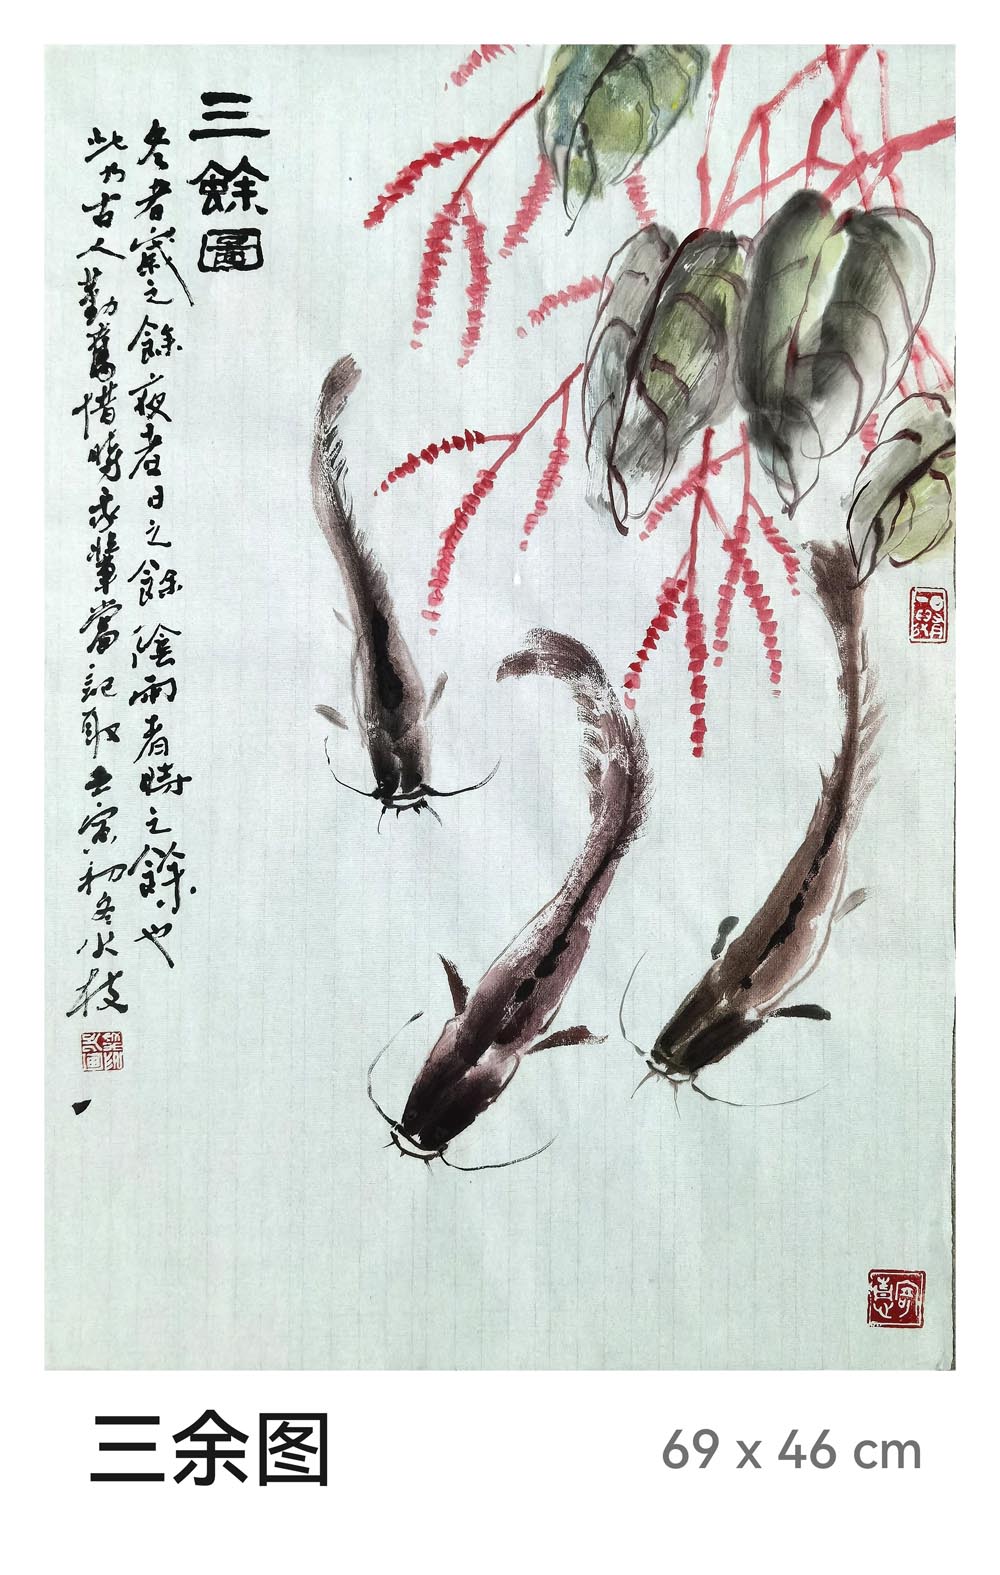 三餘圖
冬者歲之餘夜者日之餘陰雨者時之餘也
此乃古人勤奮惜時我輩當記取壬寅初冬枝
三余图
69 x 46 cm